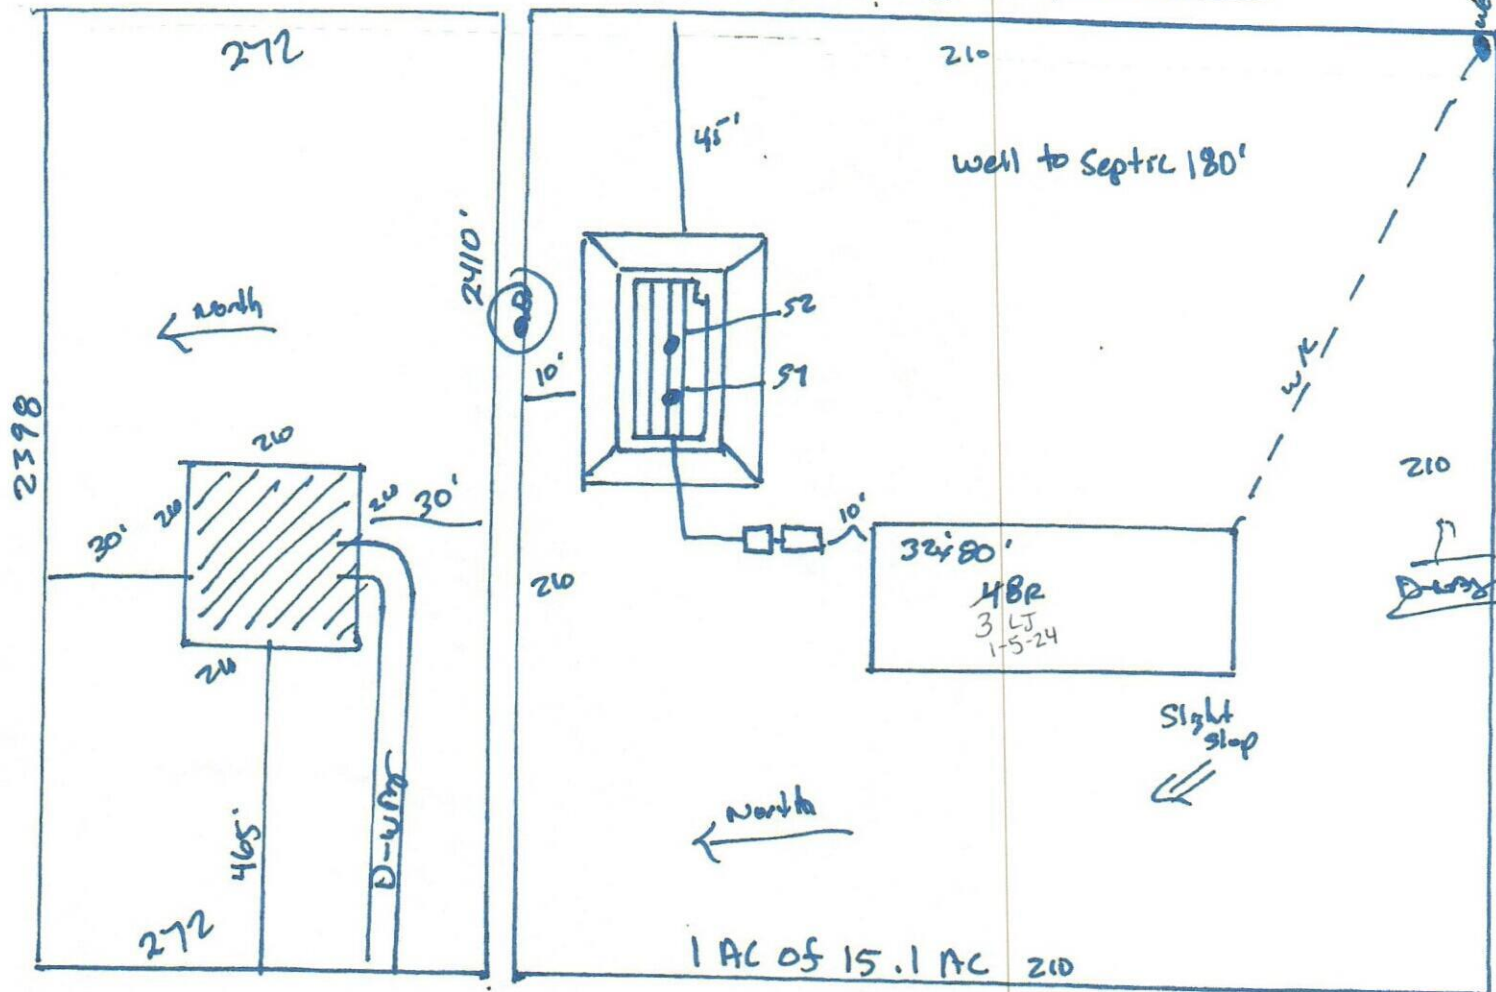 272
2410'
North
2398
210
210
210
30'
30'
210
465'
D-way
272
210
45'
well to Septic 180'
10'
S2
S1
W/L
210
10'
32x80'
4BR
3 LJ
1-5-24
210
D-way
Slght
Slop
North
1 AC of 15.1 AC 210